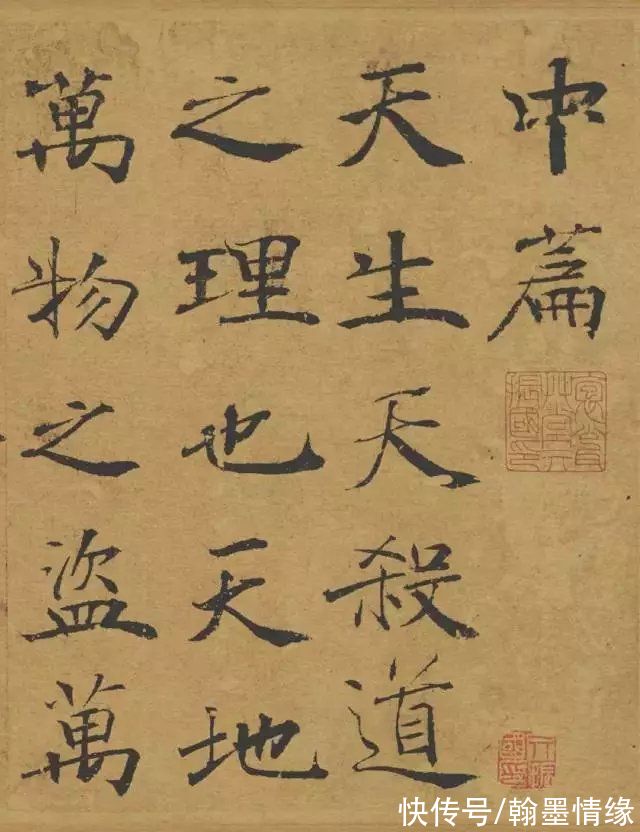 中篇
天生天殺道
之理也天地
萬物之盜萬
快传号/翰墨情缘